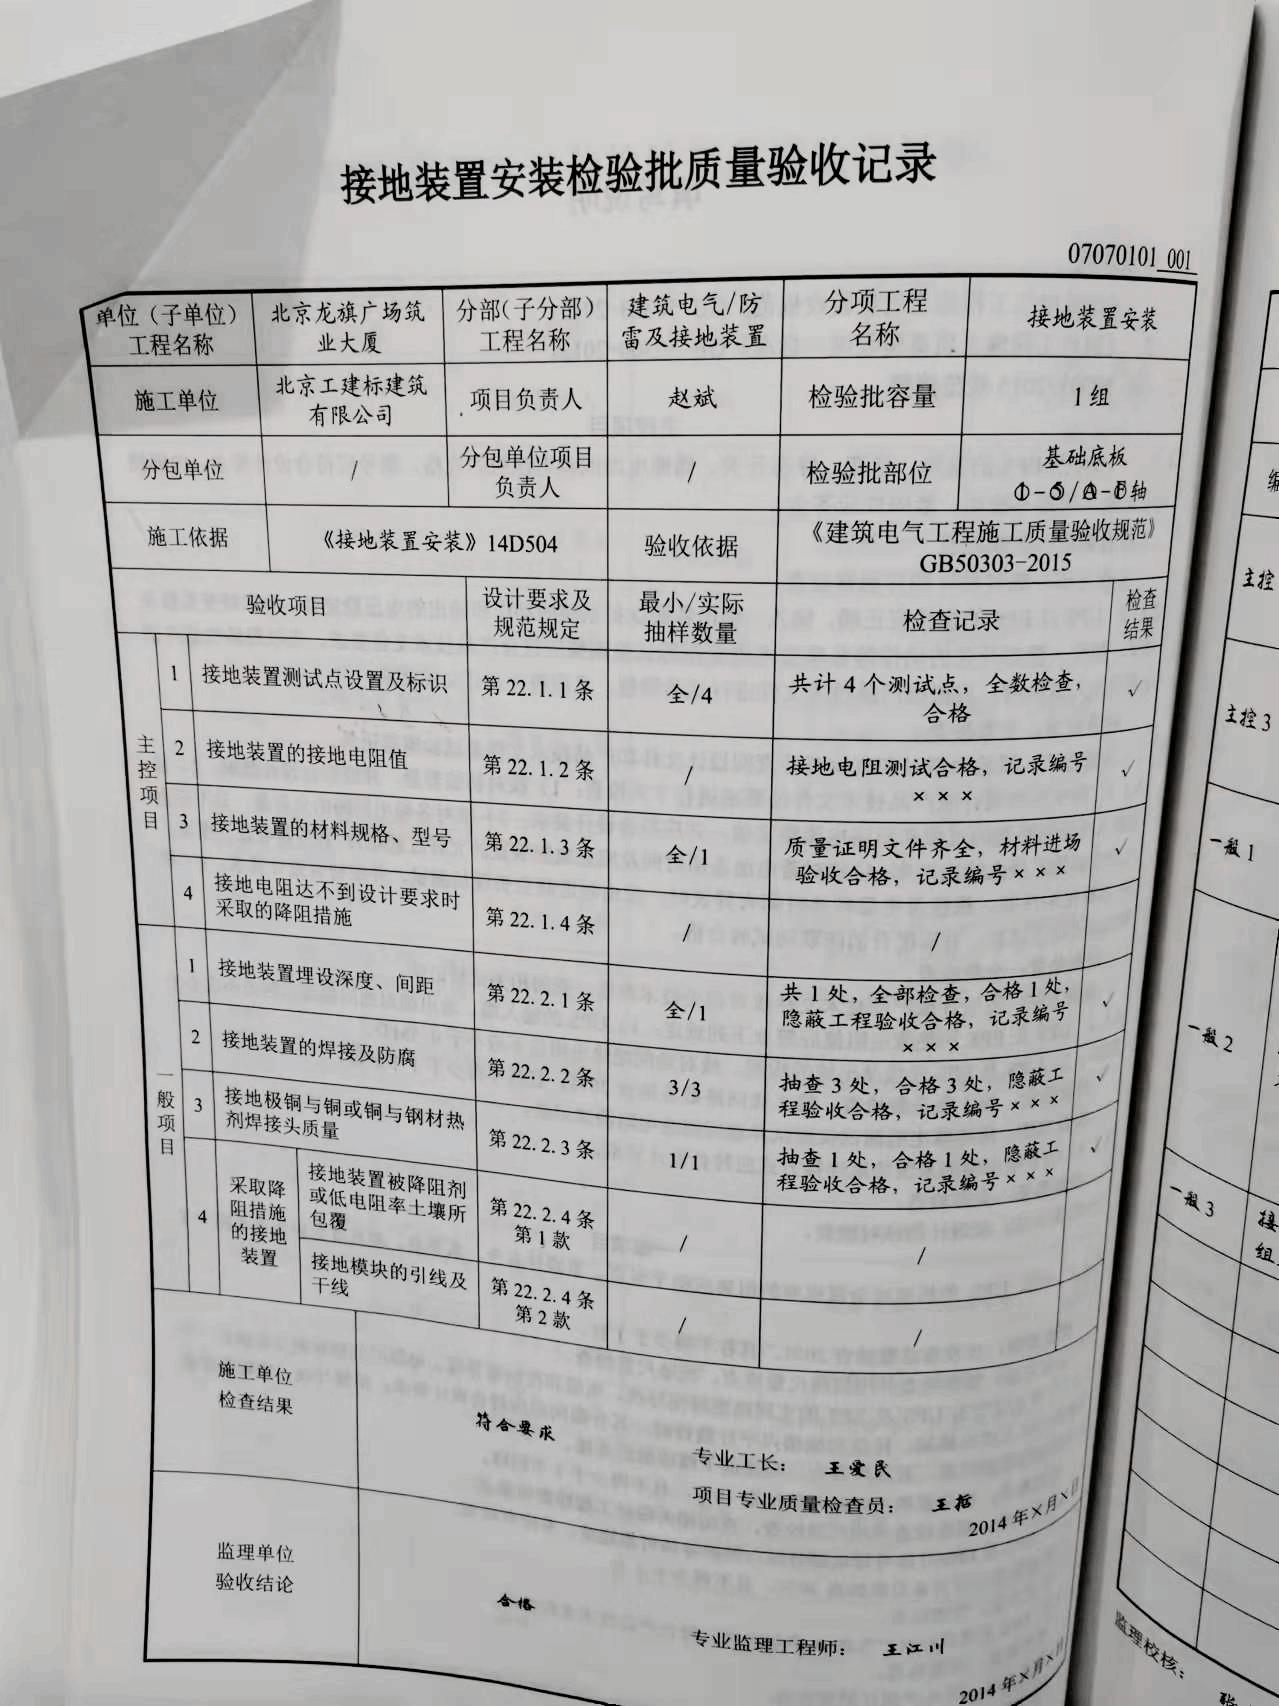 接地装置安装检验批质量验收记录
07070101 001
单位（子单位）
工程名称
北京龙旗广场筑
业大厦
分部（子分部）
工程名称
建筑电气/防
雷及接地装置
分项工程
名称
接地装置安装
施工单位
北京工建标建筑
有限公司
项目负责人
赵斌
检验批容量
1组
分包单位
/
分包单位项目
负责人
/
检验批部位
基础底板
①-⑤/Ⓐ-Ⓕ轴
施工依据
《接地装置安装》14D504
验收依据
《建筑电气工程施工质量验收规范》
GB50303-2015
验收项目
设计要求及
规范规定
最小/实际
抽样数量
检查记录
检查
结果
主控项目
1
接地装置测试点设置及标识
第22.1.1条
全/4
共计4个测试点，全数检查，
合格
√
2
接地装置的接地电阻值
第22.1.2条
/
接地电阻测试合格，记录编号
×××
√
3
接地装置的材料规格、型号
第22.1.3条
全/1
质量证明文件齐全，材料进场
验收合格，记录编号×××
√
4
接地电阻达不到设计要求时
采取的降阻措施
第22.1.4条
/
/
一般项目
1
接地装置埋设深度、间距
第22.2.1条
全/1
共1处，全部检查，合格1处，
隐蔽工程验收合格，记录编号
×××
√
2
接地装置的焊接及防腐
第22.2.2条
3/3
抽查3处，合格3处，隐蔽工
程验收合格，记录编号×××
√
3
接地极铜与铜或铜与钢材热
剂焊接头质量
第22.2.3条
1/1
抽查1处，合格1处，隐蔽工
程验收合格，记录编号×××
√
4
采取降
阻措施
的接地
装置
接地装置被降阻剂
或低电阻率土壤所
包覆
第22.2.4条
第1款
/
/
接地模块的引线及
干线
第22.2.4条
第2款
/
/
施工单位
检查结果
符合要求
专业工长：王爱民
项目专业质量检查员：王括
2014年×月×日
监理单位
验收结论
合格
专业监理工程师：王江川
2014年×月×日
主控
主控3
一般1
一般2
一般3
接
组
监理校核：
张